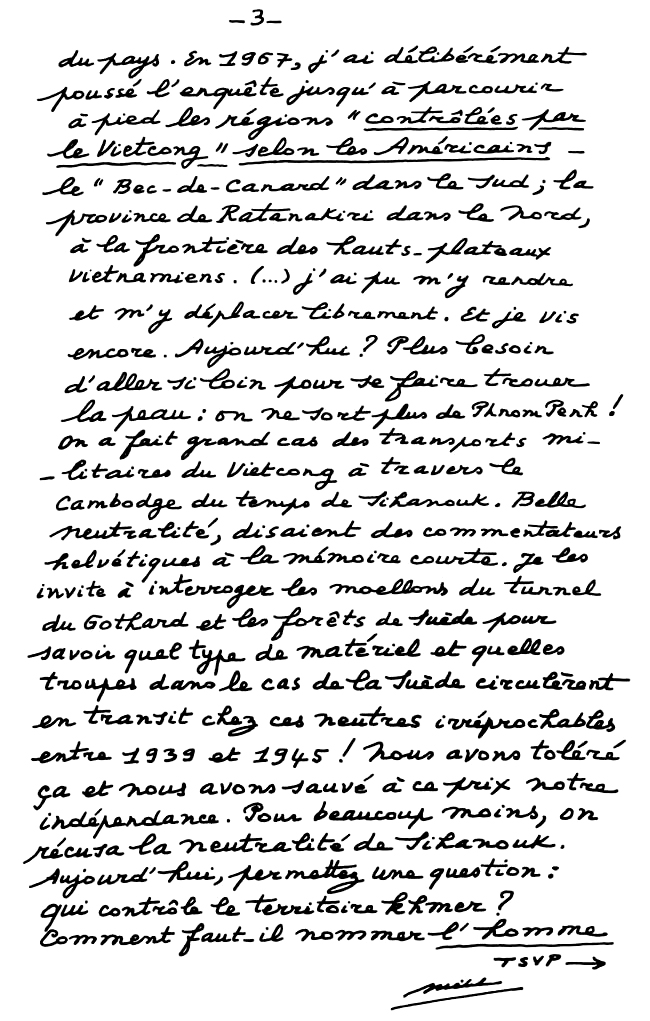 -3-
du pays. En 1967, j'ai délibérément
poussé l'enquête jusqu'à parcourir
à pied les régions "contrôlées par
le Vietcong" selon les Américains -
le "Bec-de-Canard" dans le Sud ; la
province de Ratanakiri dans le Nord,
à la frontière des hauts-plateaux
vietnamiens. (...) j'ai pu m'y rendre
et m'y déplacer librement. Et je vis
encore. Aujourd'hui ? Plus besoin
d'aller si loin pour se faire trouer
la peau : on ne sort plus de Phnom Penh !
On a fait grand cas des transports mi-
-litaires du Vietcong à travers le
Cambodge du temps de Sihanouk. Belle
neutralité, disaient des commentateurs
helvétiques à la mémoire courte. Je les
invite à interroger les moellons du tunnel
du Gothard et les forêts de Suède pour
savoir quel type de matériel et quelles
troupes dans le cas de la Suède circulèrent
en transit chez ces neutres irréprochables
entre 1939 et 1945 ! Nous avons toléré
ça et nous avons sauvé à ce prix notre
indépendance. Pour beaucoup moins, on
récusa la neutralité de Sihanouk.
Aujourd'hui, permettez une question :
qui contrôle le territoire khmer ?
Comment faut-il nommer l'homme
TSVP →